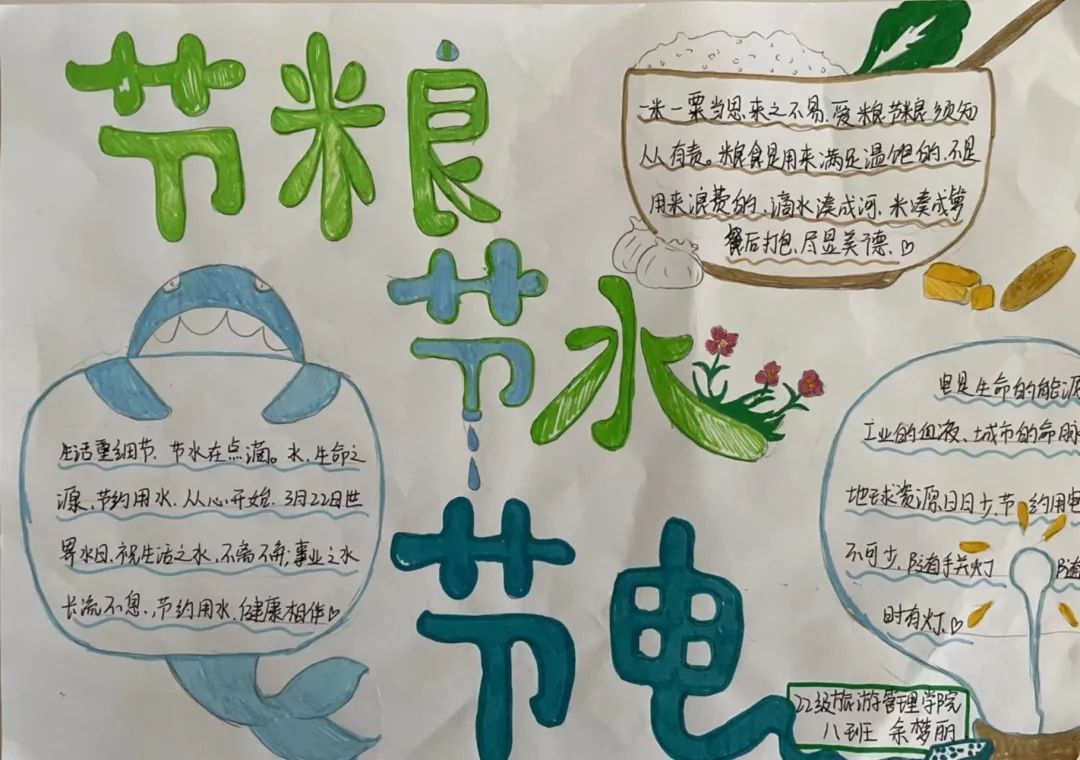 节粮
节水
节电
一米一粟当思来之不易、爱粮节粮须知
人人有责。粮食是用来满足温饱的、不是
用来浪费的、滴水凑成河、米凑成箩
餐后打包、尽显美德、
生活重细节、节水在点滴。水、生命之
源、节约用水、从心开始、3月22日世
界水日、祝生活之水、不离不弃;事业之水
长流不息、节约用水、健康相伴
电是生命的能源
工业的血液、城市的命脉
地球资源日日少、节约用电
不可少、随手关灯 随
时有灯、
22级旅游管理学院
八班 余梦丽